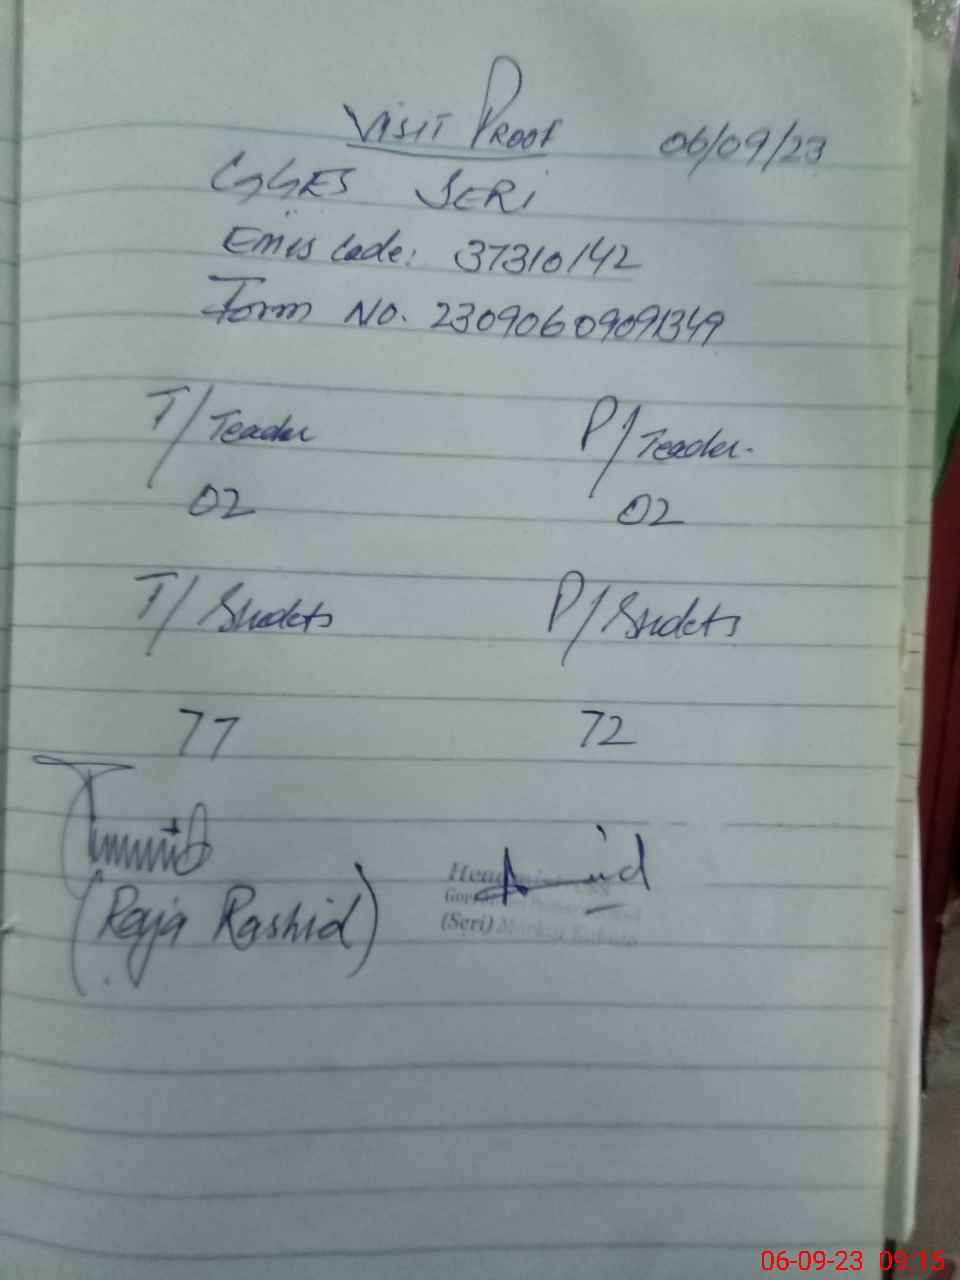 Visit Proof 06/09/23
GGES SERi
Emis Code: 37310142
Form No. 23090609091349
T/Teacher P/Teacher.
02 02
T/Studets P/Studets
77 72
(Raja Rashid)
(Seri)
06-09-23 09:15